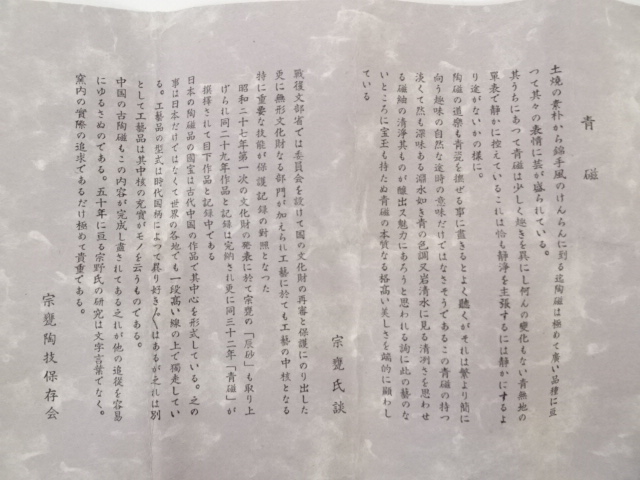 青磁
土焼の素朴から錦手風のけんらんに到る迄陶磁は極めて廣い品種に亘
つて其々の表情に芸が盛られている。
其うちにあつて青磁は少しく趣きを異にし何んの變化もない青無地の
單表で静かに控えているこれは恰も静淨を主張するには静かにするよ
り途がないかの様に。
陶磁の道楽も青瓷を撫ぜる事に盡きるとよく聽くがそれは繁より簡に
向う趣味の自然な途時の意味だけではなさそうであるこの青磁の持つ
淡くて然も深味ある湖水如き青の色調又岩清水に見る清冽さを思わせ
る磁釉の清浄其ものゝ醸出ス魅力にあろうと思われる詢に此の藝のな
いところに宝玉も持たぬ青磁の本質なる格高い美しさを端的に顕わし
ている
宗甕氏談
戰後文部省では委員会を設けて国の文化財の再審と保護にのり出した
更に無形文化財なる部門が加えられ工藝に於ても工藝の中核となる
特に重要な技能が保護記録の對照となつた
昭和二十七年第一次の文化財の発表に於て宗甕の「辰砂」も取り上
げられ同二十九年作品と記録は完納され更に同三十二年「青磁」が
撰擇されて目下作品と記録中である
日本の陶磁品の國宝は古代中国の作品で其中心を形式している。之の
事は日本だけではなくて世界の各地でも一段高い線の上で獨走してい
る。工藝品の型式は時代国柄によつて異り好き〳〵はあるが之れは別
として工藝品は其中核の充實がモノを云うものである。
中国の古陶磁もこの内容が完成し盡されてある之れが他の追従を容易
にゆるさぬのである。五十年に亘る宗野氏の研究は文字言葉でなく。
窯内の實際の追求であるだけ極めて貴重である。
宗甕陶技保存会